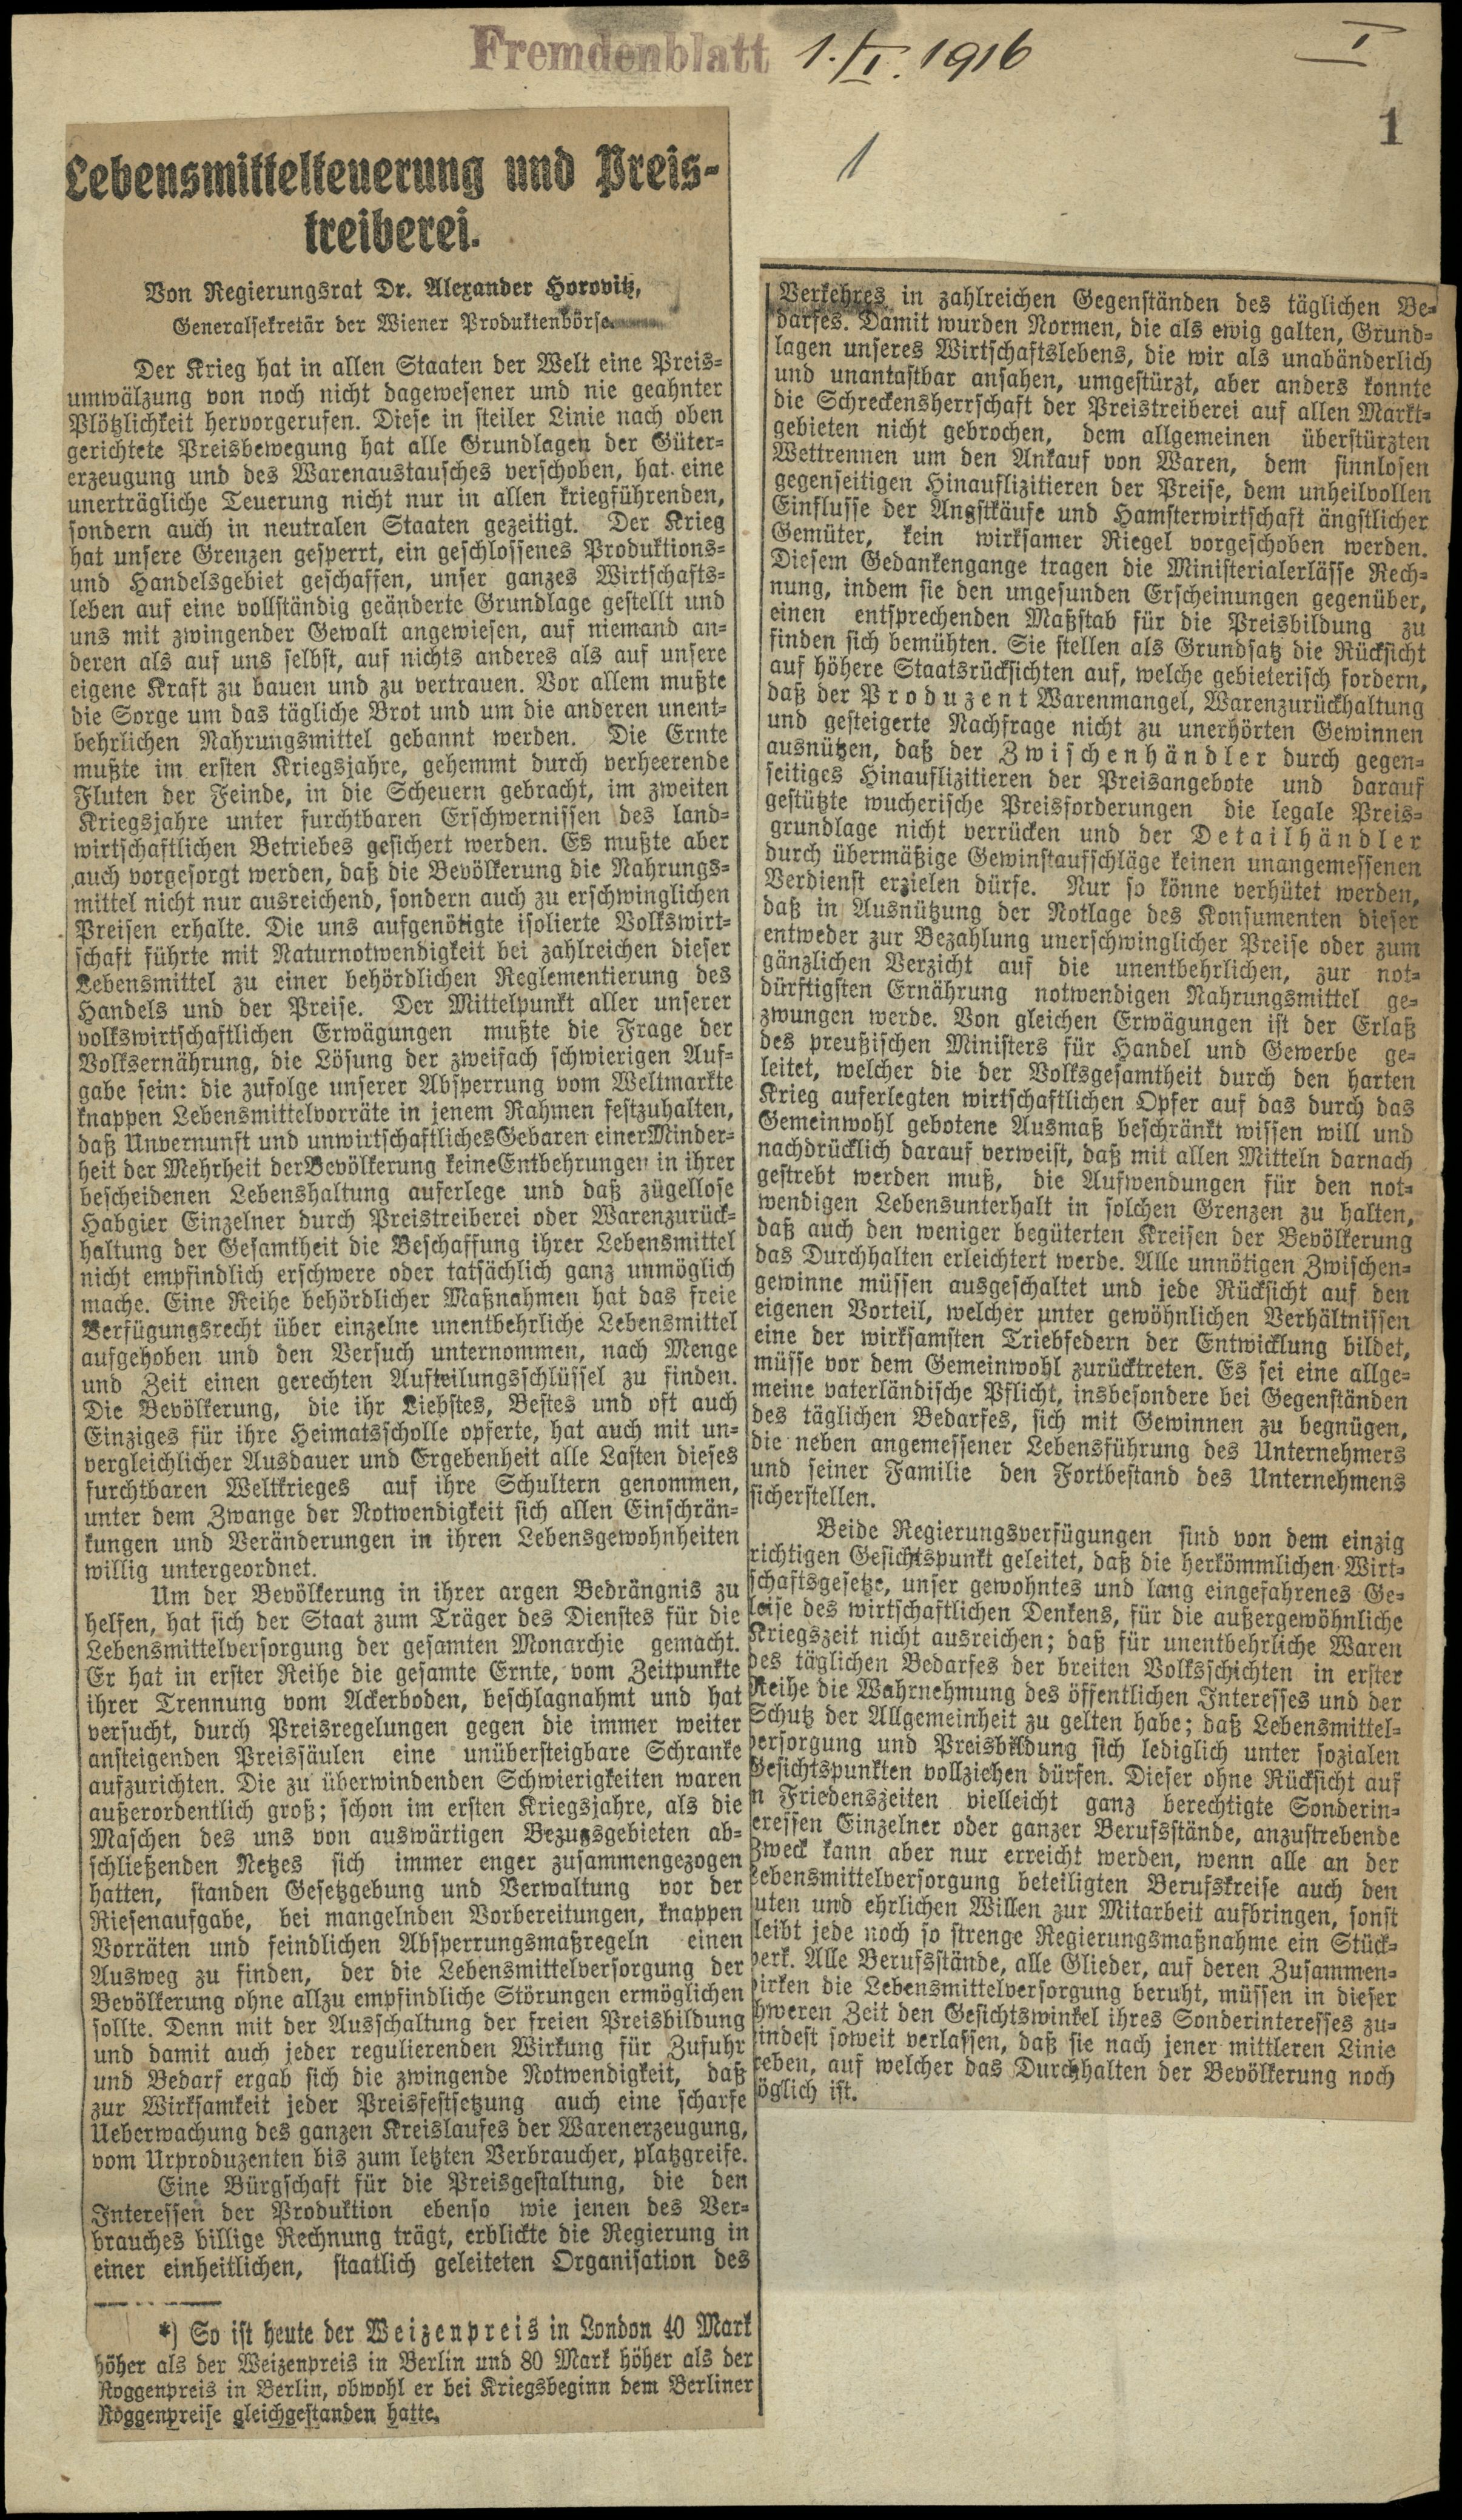 Fremdenblatt 1./I. 1916
I
1
1
Lebensmittelteuerung und Preis-
treiberei.
Von Regierungsrat Dr. Alexander Horovitz,
Generalsekretär der Wiener Produktenbörse.
Der Krieg hat in allen Staaten der Welt eine Preis-
umwälzung von noch nicht dagewesener und nie geahnter
Plötzlichkeit hervorgerufen. Diese in steiler Linie nach oben
gerichtete Preisbewegung hat alle Grundlagen der Güter-
erzeugung und des Warenaustausches verschoben, hat eine
unerträgliche Teuerung nicht nur in allen kriegführenden,
sondern auch in neutralen Staaten gezeitigt. Der Krieg
hat unsere Grenzen gesperrt, ein geschlossenes Produktions-
und Handelsgebiet geschaffen, unser ganzes Wirtschafts-
leben auf eine vollständig geänderte Grundlage gestellt und
uns mit zwingender Gewalt angewiesen, auf niemand an-
deren als auf uns selbst, auf nichts anderes als auf unsere
eigene Kraft zu bauen und zu vertrauen. Vor allem mußte
die Sorge um das tägliche Brot und um die anderen unent-
behrlichen Nahrungsmittel gebannt werden. Die Ernte
mußte im ersten Kriegsjahre, gehemmt durch verheerende
Fluten der Feinde, in die Scheuern gebracht, im zweiten
Kriegsjahre unter furchtbaren Erschwernissen des land-
wirtschaftlichen Betriebes gesichert werden. Es mußte aber
auch vorgesorgt werden, daß die Bevölkerung die Nahrungs-
mittel nicht nur ausreichend, sondern auch zu erschwinglichen
Preisen erhalte. Die uns aufgenötigte isolierte Volkswirt-
schaft führte mit Naturnotwendigkeit bei zahlreichen dieser
Lebensmittel zu einer behördlichen Reglementierung des
Handels und der Preise. Der Mittelpunkt aller unserer
volkswirtschaftlichen Erwägungen mußte die Frage der
Volksernährung, die Lösung der zweifach schwierigen Auf-
gabe sein: die zufolge unserer Absperrung vom Weltmarkte
knappen Lebensmittelvorräte in jenem Rahmen festzuhalten,
daß Unvernunft und unwirtschaftlichesGebaren einerMinder-
heit der Mehrheit derBevölkerung keineEntbehrungen in ihrer
bescheidenen Lebenshaltung auferlege und daß zügellose
Habgier Einzelner durch Preistreiberei oder Warenzurück-
haltung der Gesamtheit die Beschaffung ihrer Lebensmittel
nicht empfindlich erschwere oder tatsächlich ganz unmöglich
mache. Eine Reihe behördlicher Maßnahmen hat das freie
Verfügungsrecht über einzelne unentbehrliche Lebensmittel
aufgehoben und den Versuch unternommen, nach Menge
und Zeit einen gerechten Aufteilungsschlüssel zu finden.
Die Bevölkerung, die ihr Liebstes, Bestes und oft auch
Einziges für ihre Heimatsscholle opferte, hat auch mit un-
vergleichlicher Ausdauer und Ergebenheit alle Lasten dieses
furchtbaren Weltkrieges auf ihre Schultern genommen,
unter dem Zwange der Notwendigkeit sich allen Einschrän-
kungen und Veränderungen in ihren Lebensgewohnheiten
willig untergeordnet.
Um der Bevölkerung in ihrer argen Bedrängnis zu
helfen, hat sich der Staat zum Träger des Dienstes für die
Lebensmittelversorgung der gesamten Monarchie gemacht.
Er hat in erster Reihe die gesamte Ernte, vom Zeitpunkte
ihrer Trennung vom Ackerboden, beschlagnahmt und hat
versucht, durch Preisregelungen gegen die immer weiter
ansteigenden Preissäulen eine unübersteigbare Schranke
aufzurichten. Die zu überwindenden Schwierigkeiten waren
außerordentlich groß; schon im ersten Kriegsjahre, als die
Maschen des uns von auswärtigen Bezugsgebieten ab-
schließenden Netzes sich immer enger zusammengezogen
hatten, standen Gesetzgebung und Verwaltung vor der
Riesenaufgabe, bei mangelnden Vorbereitungen, knappen
Vorräten und feindlichen Absperrungsmaßregeln einen
Ausweg zu finden, der die Lebensmittelversorgung der
Bevölkerung ohne allzu empfindliche Störungen ermöglichen
sollte. Denn mit der Ausschaltung der freien Preisbildung
und damit auch jeder regulierenden Wirkung für Zufuhr
und Bedarf ergab sich die zwingende Notwendigkeit, daß
zur Wirksamkeit jeder Preisfestsetzung auch eine scharfe
Ueberwachung des ganzen Kreislaufes der Warenerzeugung,
vom Urproduzenten bis zum letzten Verbraucher, platzgreife.
Eine Bürgschaft für die Preisgestaltung, die den
Interessen der Produktion ebenso wie jenen des Ver-
brauches billige Rechnung trägt, erblickte die Regierung in
einer einheitlichen, staatlich geleiteten Organisation des
*) So ist heute der Weizenpreis in London 40 Mark
höher als der Weizenpreis in Berlin und 80 Mark höher als der
Roggenpreis in Berlin, obwohl er bei Kriegsbeginn dem Berliner
Roggenpreise gleichgestanden hatte.
Verkehres in zahlreichen Gegenständen des täglichen Be-
darfes. Damit wurden Normen, die als ewig galten, Grund-
lagen unseres Wirtschaftslebens, die wir als unabänderlich
und unantastbar ansahen, umgestürzt, aber anders konnte
die Schreckensherrschaft der Preistreiberei auf allen Markt-
gebieten nicht gebrochen, dem allgemeinen überstürzten
Wettrennen um den Ankauf von Waren, dem sinnlosen
gegenseitigen Hinauflizitieren der Preise, dem unheilvollen
Einflusse der Angstkäufe und Hamsterwirtschaft ängstlicher
Gemüter, kein wirksamer Riegel vorgeschoben werden.
Diesem Gedankengange tragen die Ministerialerlässe Rech-
nung, indem sie den ungesunden Erscheinungen gegenüber,
einen entsprechenden Maßstab für die Preisbildung zu
finden sich bemühten. Sie stellen als Grundsatz die Rücksicht
auf höhere Staatsrücksichten auf, welche gebieterisch fordern,
daß der Produzent Warenmangel, Warenzurückhaltung
und gesteigerte Nachfrage nicht zu unerhörten Gewinnen
ausnützen, daß der Zwischenhändler durch gegen-
seitiges Hinauflizitieren der Preisangebote und darauf
gestützte wucherische Preisforderungen die legale Preis-
grundlage nicht verrücken und der Detailhändler
durch übermäßige Gewinstaufschläge keinen unangemessenen
Verdienst erzielen dürfe. Nur so könne verhütet werden,
daß in Ausnützung der Notlage des Konsumenten dieser
entweder zur Bezahlung unerschwinglicher Preise oder zum
gänzlichen Verzicht auf die unentbehrlichen, zur not-
dürftigsten Ernährung notwendigen Nahrungsmittel ge-
zwungen werde. Von gleichen Erwägungen ist der Erlaß
des preußischen Ministers für Handel und Gewerbe ge-
leitet, welcher die der Volksgesamtheit durch den harten
Krieg auferlegten wirtschaftlichen Opfer auf das durch das
Gemeinwohl gebotene Ausmaß beschränkt wissen will und
nachdrücklich darauf verweist, daß mit allen Mitteln darnach
gestrebt werden muß, die Aufwendungen für den not-
wendigen Lebensunterhalt in solchen Grenzen zu halten,
daß auch den weniger begüterten Kreisen der Bevölkerung
das Durchhalten erleichtert werde. Alle unnötigen Zwischen-
gewinne müssen ausgeschaltet und jede Rücksicht auf den
eigenen Vorteil, welcher unter gewöhnlichen Verhältnissen
eine der wirksamsten Triebfedern der Entwicklung bildet,
müsse vor dem Gemeinwohl zurücktreten. Es sei eine allge-
meine vaterländische Pflicht, insbesondere bei Gegenständen
des täglichen Bedarfes, sich mit Gewinnen zu begnügen,
die neben angemessener Lebensführung des Unternehmers
und seiner Familie den Fortbestand des Unternehmens
sicherstellen.
Beide Regierungsverfügungen sind von dem einzig
richtigen Gesichtspunkt geleitet, daß die herkömmlichen Wirt-
schaftsgesetze, unser gewohntes und lang eingefahrenes Ge-
leise des wirtschaftlichen Denkens, für die außergewöhnliche
Kriegszeit nicht ausreichen; daß für unentbehrliche Waren
des täglichen Bedarfes der breiten Volksschichten in erster
Reihe die Wahrnehmung des öffentlichen Interesses und der
Schutz der Allgemeinheit zu gelten habe; daß Lebensmittel-
versorgung und Preisbildung sich lediglich unter sozialen
Gesichtspunkten vollziehen dürfen. Dieser ohne Rücksicht auf
n Friedenszeiten vielleicht ganz berechtigte Sonderin-
eressen Einzelner oder ganzer Berufsstände, anzustrebende
Zweck kann aber nur erreicht werden, wenn alle an der
Lebensmittelversorgung beteiligten Berufskreise auch den
uten und ehrlichen Willen zur Mitarbeit aufbringen, sonst
leibt jede noch so strenge Regierungsmaßnahme ein Stück-
werk. Alle Berufsstände, alle Glieder, auf deren Zusammen-
wirken die Lebensmittelversorgung beruht, müssen in dieser
hweren Zeit den Gesichtswinkel ihres Sonderinteresses zu-
indest soweit verlassen, daß sie nach jener mittleren Linie
reben, auf welcher das Durchhalten der Bevölkerung noch
öglich ist.